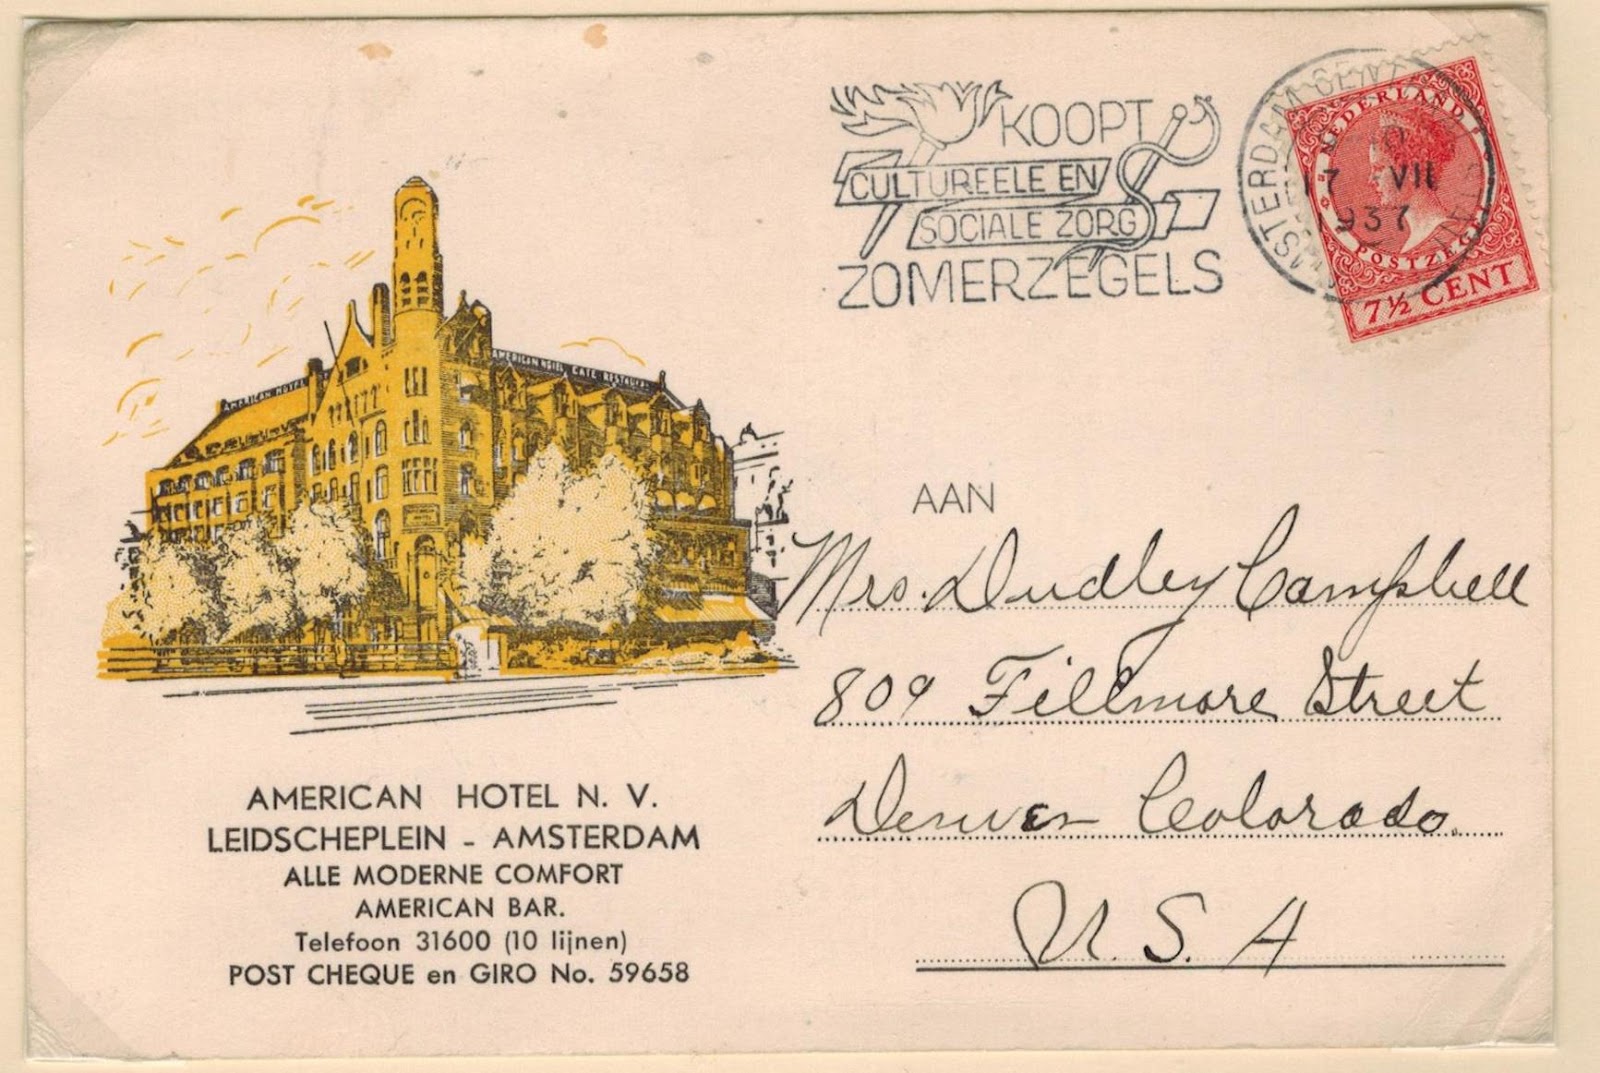 KOOPT
CULTUREELE EN
SOCIALE ZORG
ZOMERZEGELS
AMSTERDAM CENT
10
17 VII
1937
NEDERLAND
POSTZEGEL
7½ CENT
AMERICAN HOTEL
AMERICAN HOTEL CAFE RESTAURA
AAN
Mrs. Dudley Campbell
809 Fillmore Street
Denver Colorado.
U. S. A
AMERICAN HOTEL N. V.
LEIDSCHEPLEIN - AMSTERDAM
ALLE MODERNE COMFORT
AMERICAN BAR.
Telefoon 31600 (10 lijnen)
POST CHEQUE en GIRO No. 59658